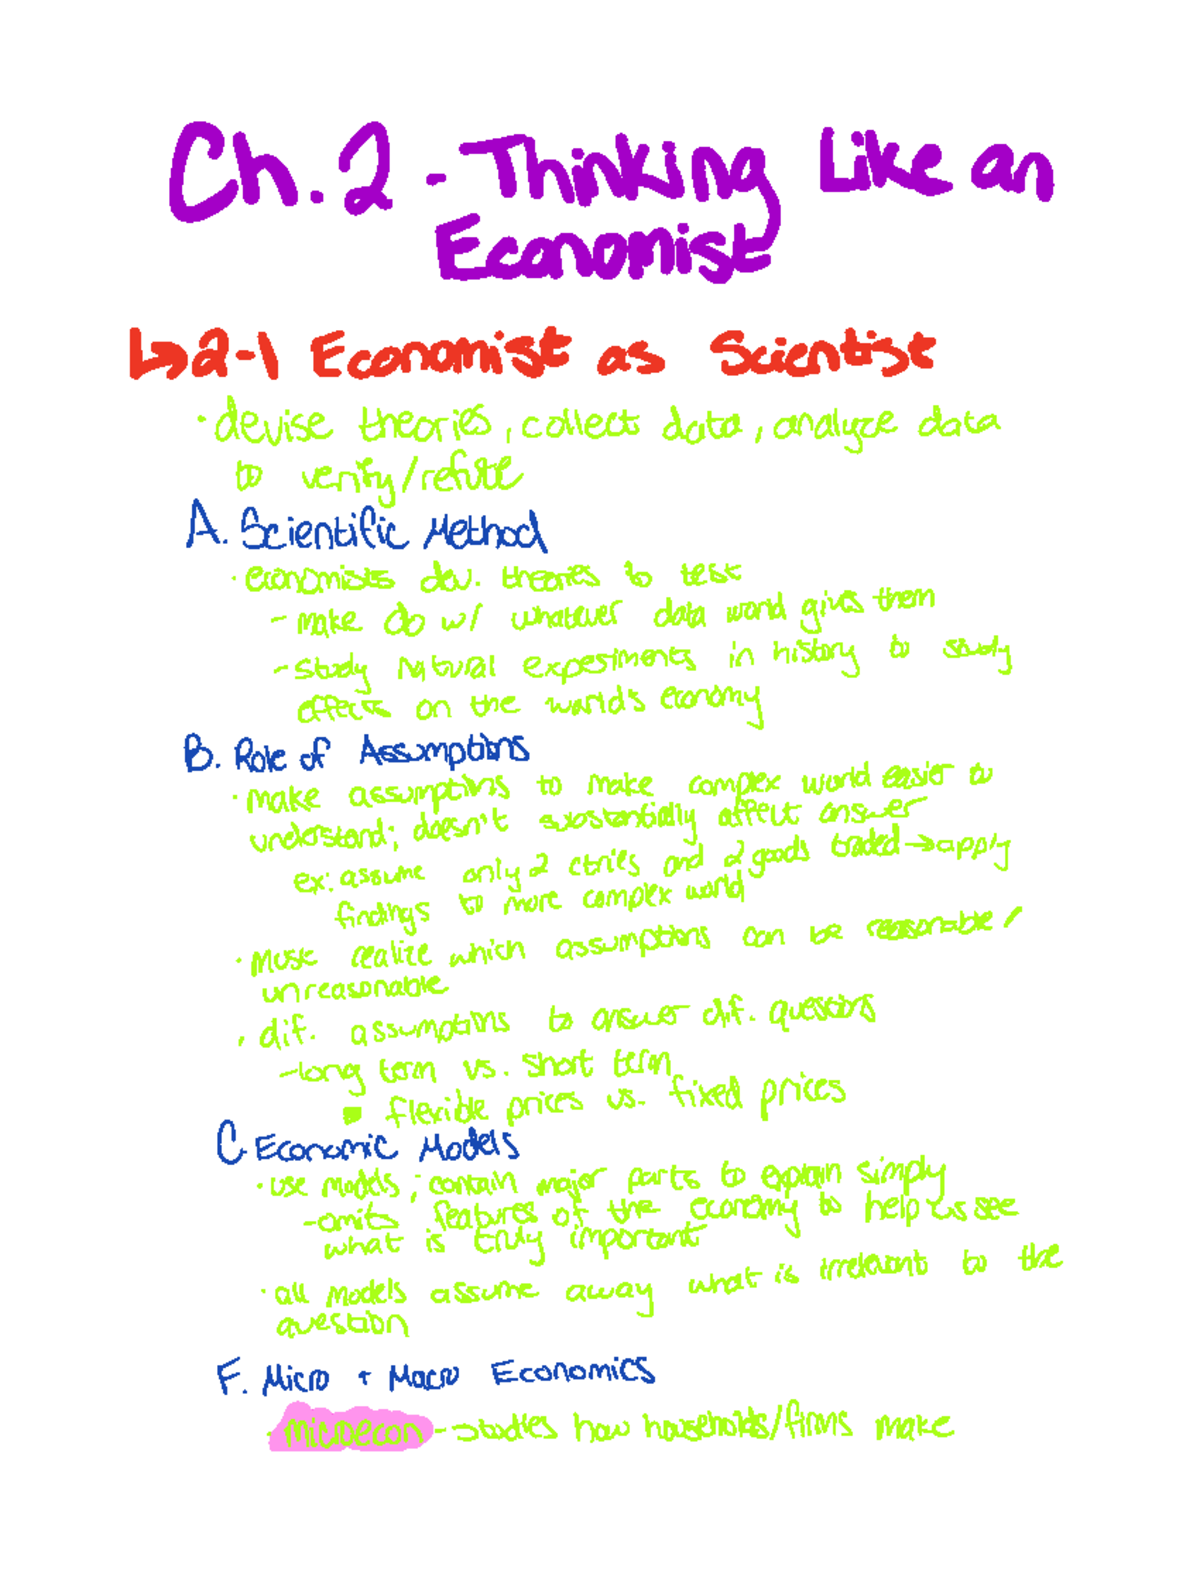 Ch. 2 - Thinking Like an
Economist
↳ 2-1 Economist as Scientist
· devise theories, collect data, analyze data
to verify/refute
A. Scientific Method
· economists dev. theories to test
- make do w/ whatever data world gives them
- study natural experiments in history to study
effects on the world's economy
B. Role of Assumptions
· make assumptions to make complex world easier to
understand; doesn't substantially affect answer
ex: assume only 2 ctries and 2 goods traded → apply
findings to more complex world
· Must realize which assumptions can be reasonable/
unreasonable
· dif. assumptions to answer dif. questions
- long term vs. short term
▪ flexible prices vs. fixed prices
C. Economic Models
· use models; contain major parts to explain simply
- omits features of the economy to help us see
what is truly important
· all models assume away what is irrelevant to the
question
F. Micro + Macro Economics
· microecon → studies how households/firms make